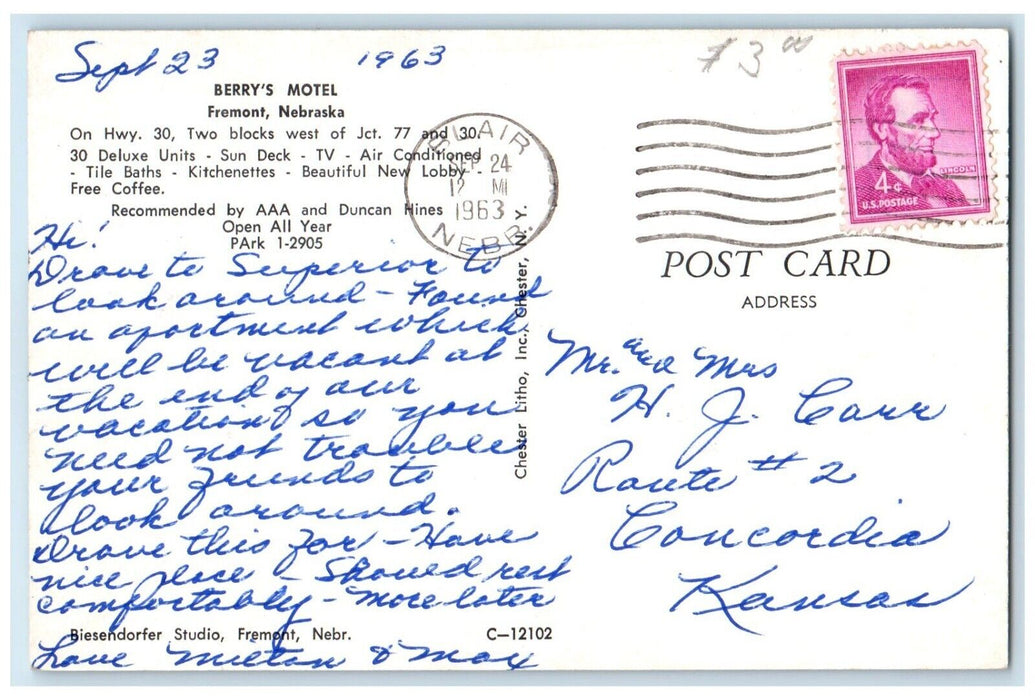 Sept 23 1963
$3.00
BERRY'S MOTEL
Fremont, Nebraska
On Hwy. 30, Two blocks west of Jct. 77 and 30.
30 Deluxe Units - Sun Deck - TV - Air Conditioned
- Tile Baths - Kitchenettes - Beautiful New Lobby -
Free Coffee.
Recommended by AAA and Duncan Hines
Open All Year
PArk 1-2905
BLAIR
SEP 24
12 M
1963
NEBR.
LINCOLN
4¢
U.S. POSTAGE
Hi!
Drove to Superior to
look around - Found
an apartment which
will be vacant at
the end of our
vacation so you
need not trouble
your friends to
look around.
Drove this far - Have
nice place - Should rest
comfortably - More later
Biesendorfer Studio, Fremont, Nebr. C-12102
Love Milton & Max
Chester Litho, Inc., Chester, N. Y.
POST CARD
ADDRESS
Mr. and Mrs
H. J. Carr
Route # 2
Concordia
Kansas